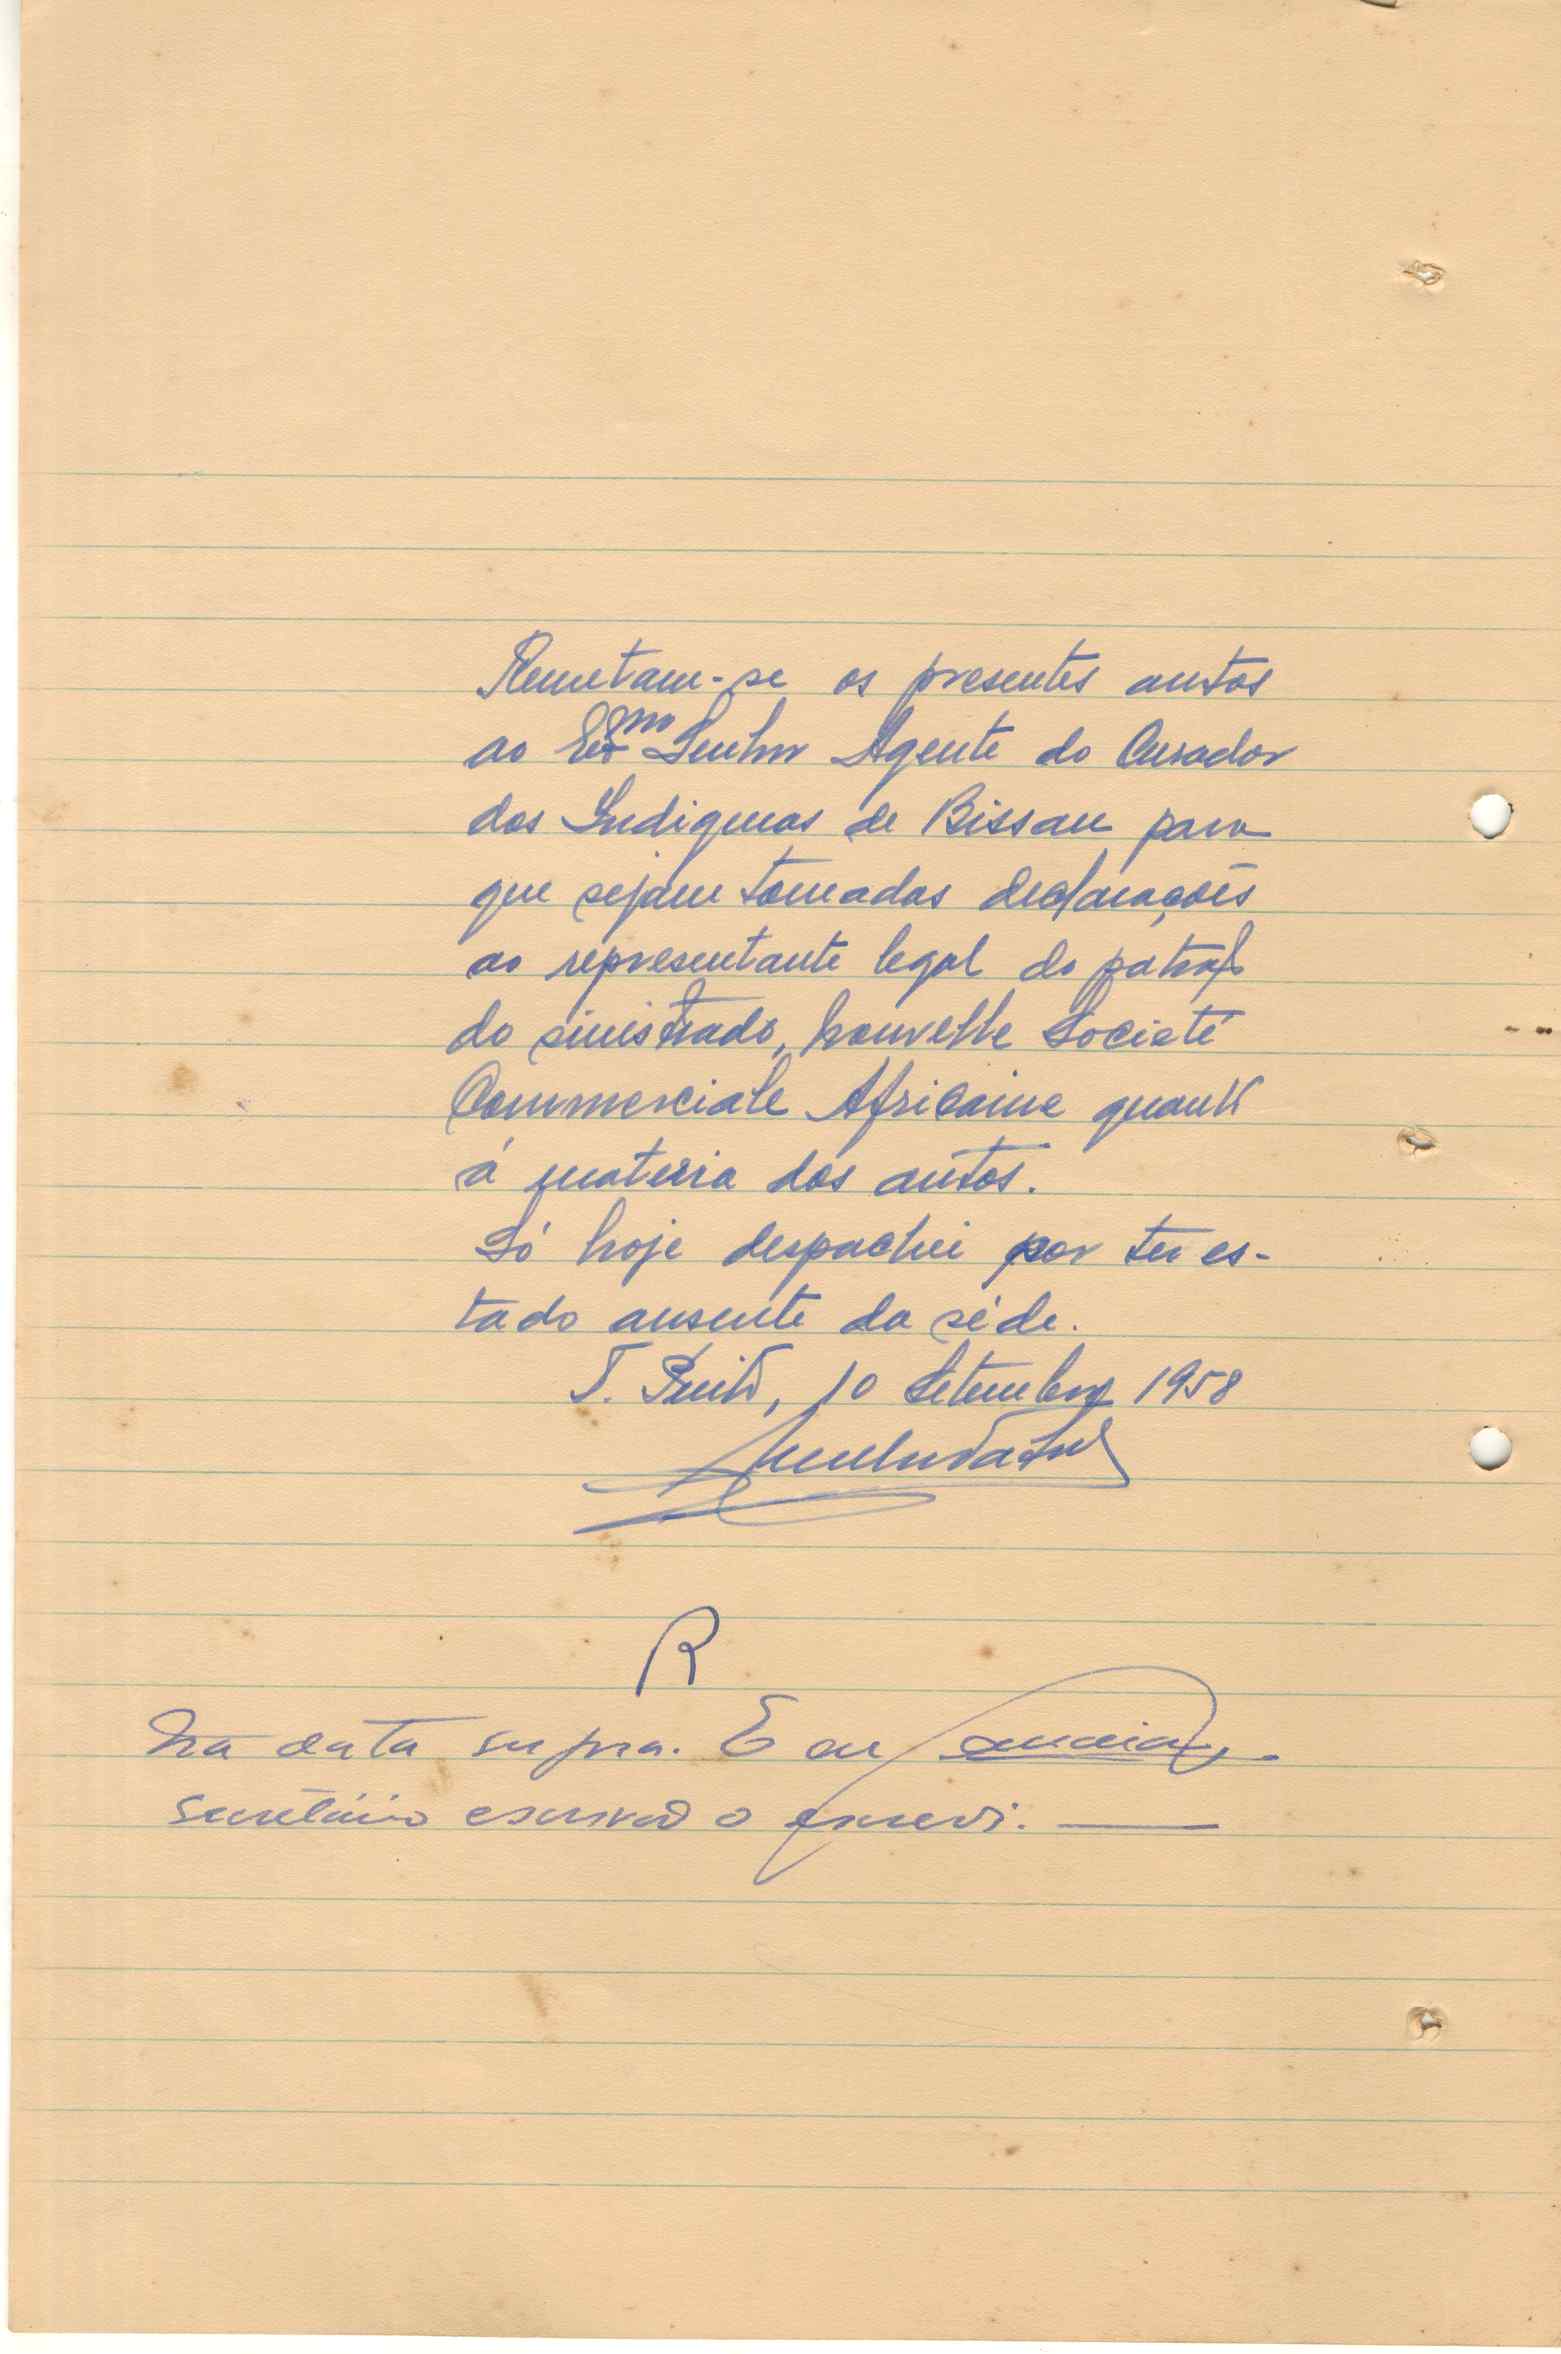 Remetam-se os presentes autos
ao Exmo Senhor Agente do Curador
dos Indigenas de Bissau para
que sejam tomadas declarações
ao representante legal do patrão
do sinistrado, Nouvelle Societé
Commerciale Africaine quanto
á materia dos autos.
Só hoje despachei por ter es-
tado ausente da séde.
T. Pinto, 10 Setembro 1958
R
Na data supra. E eu
secretário escrivão o escrevi.